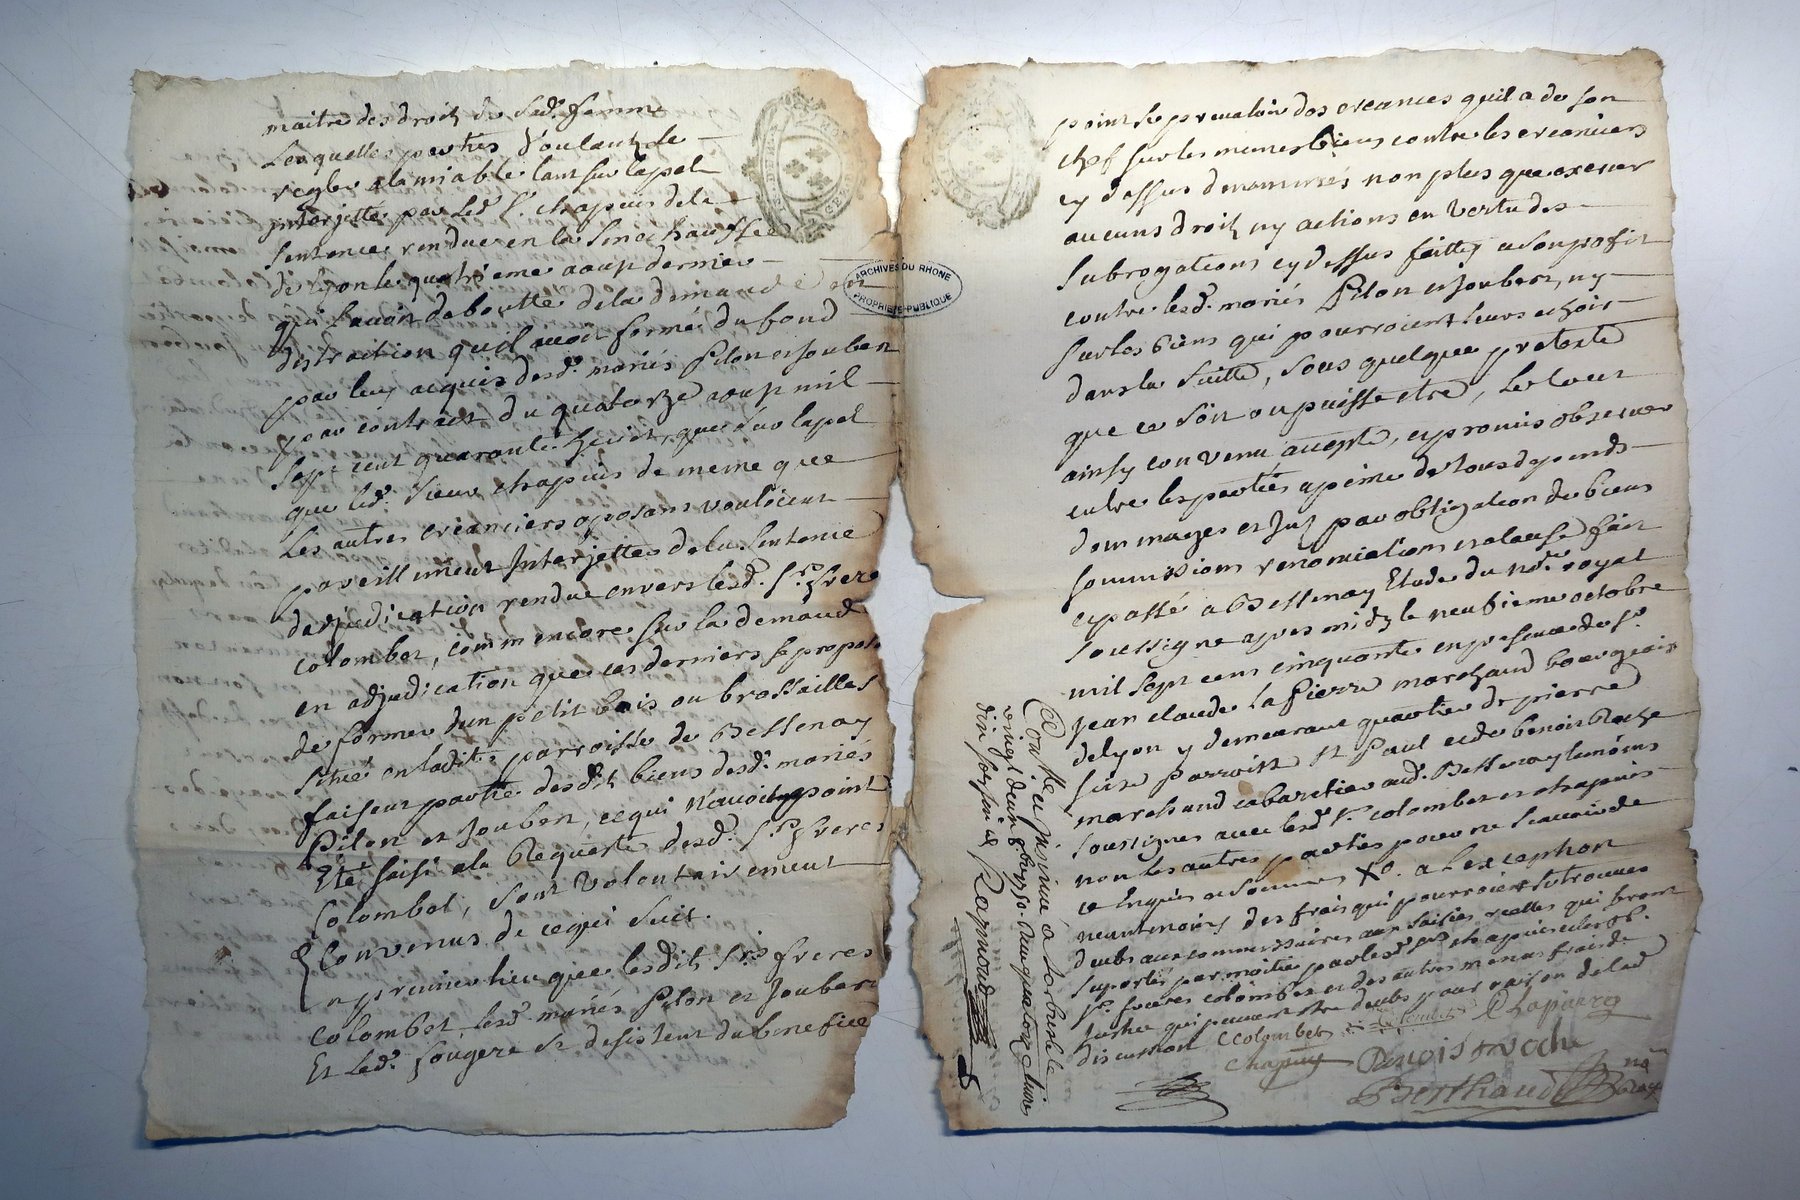 maitre des droits de sad. femme
Lesquelles parties voulant se
regler a lamiable tant sur lapel
interjetté par led. Sr. chapuis de la
sentence rendue en la senechaussée
de lyon le quatrieme aoust dernier
qui lavoit deboutté de la demande en
distraction quil avoit formé du fond
par luy acquis desd. mariés Pilon et Joubert
par contract du quatorze aoust mil
sept cent quarante huit, que sur lapel
que led. sieur chapuis de meme que
les autres creanciers oposans vouloient
pareillement Interjetter de la sentence
dadjudication rendue envers lesd. Srs. freres
colombet, comm encore sur la demande
en adjudication que ces derniers se propos
de former dun petit bois ou brossailles
situé en ladite parroisse de Bessenay
faiseur partie desdits biens desd. mariés
Pilon et Joubert, ce qui n'avoit point
Eté saisi a la Requeste desd. Srs. freres
Colombet, sont volontairement
Convenus de ce qui suit.
En premier lieu que lesdits Srs freres
colombet, lesd. mariés Pilon et Joubert
Et led. fougere se desistent du benefice
ARCHIVES DU RHONE
PROPRIÉTÉ PUBLIQUE
point se prevaloir des creances quil a de son
chef sur les memes biens contre les creanciers
cy dessus denommés non plus que exercer
aucuns droits ny actions en vertu des
subrogations cy dessus faittes a son profit
contre lesd. mariés Pilon et Joubert, ny
sur les biens qui pourroient leurs echoir
dans la suitte, sous quelque pretexte
que ce soit ou puisse etre, Le tout
ainsy convenu accepté, et promis observer
entre les parties a peine de tous depends
dommages et Int. par obligation de biens
soumissions renonciations et clause fait
et passé a Bessenay Etude du no.re royal
soussigné apres midy le neufieme octobre
mil sept cent cinquante en presence de Sr.
Jean claude La Pierre marchand bourgeois
de lyon y demeurant quartier de pierre
scize parroisse St Paul et de benoit Roche
marchand cabaretier aud. Bessenay temoins
soussignés avec lesd. Sr. colombet et chapuis
non les autres parties pour ne scavoir de
ce enquis et sommés Xo. a lexception
neantmoins des frais qui pourroient se trouver
deubs aux commissaires aux saisies reelles qui seront
suportés par moitié par led. Sr chapuis et les
Srs. freres colombet et des autres menus frais de
justice qui peuvent etre deubs pour raison de lad.
discussion Colombet Chapuis
Chapuy Benoist Roche
Berthaud no.re royal
Controllé et insinué a Larbresle
le vingt deux 8bre 1750. Reçu quatorze livres
dix sols six d. Raymond